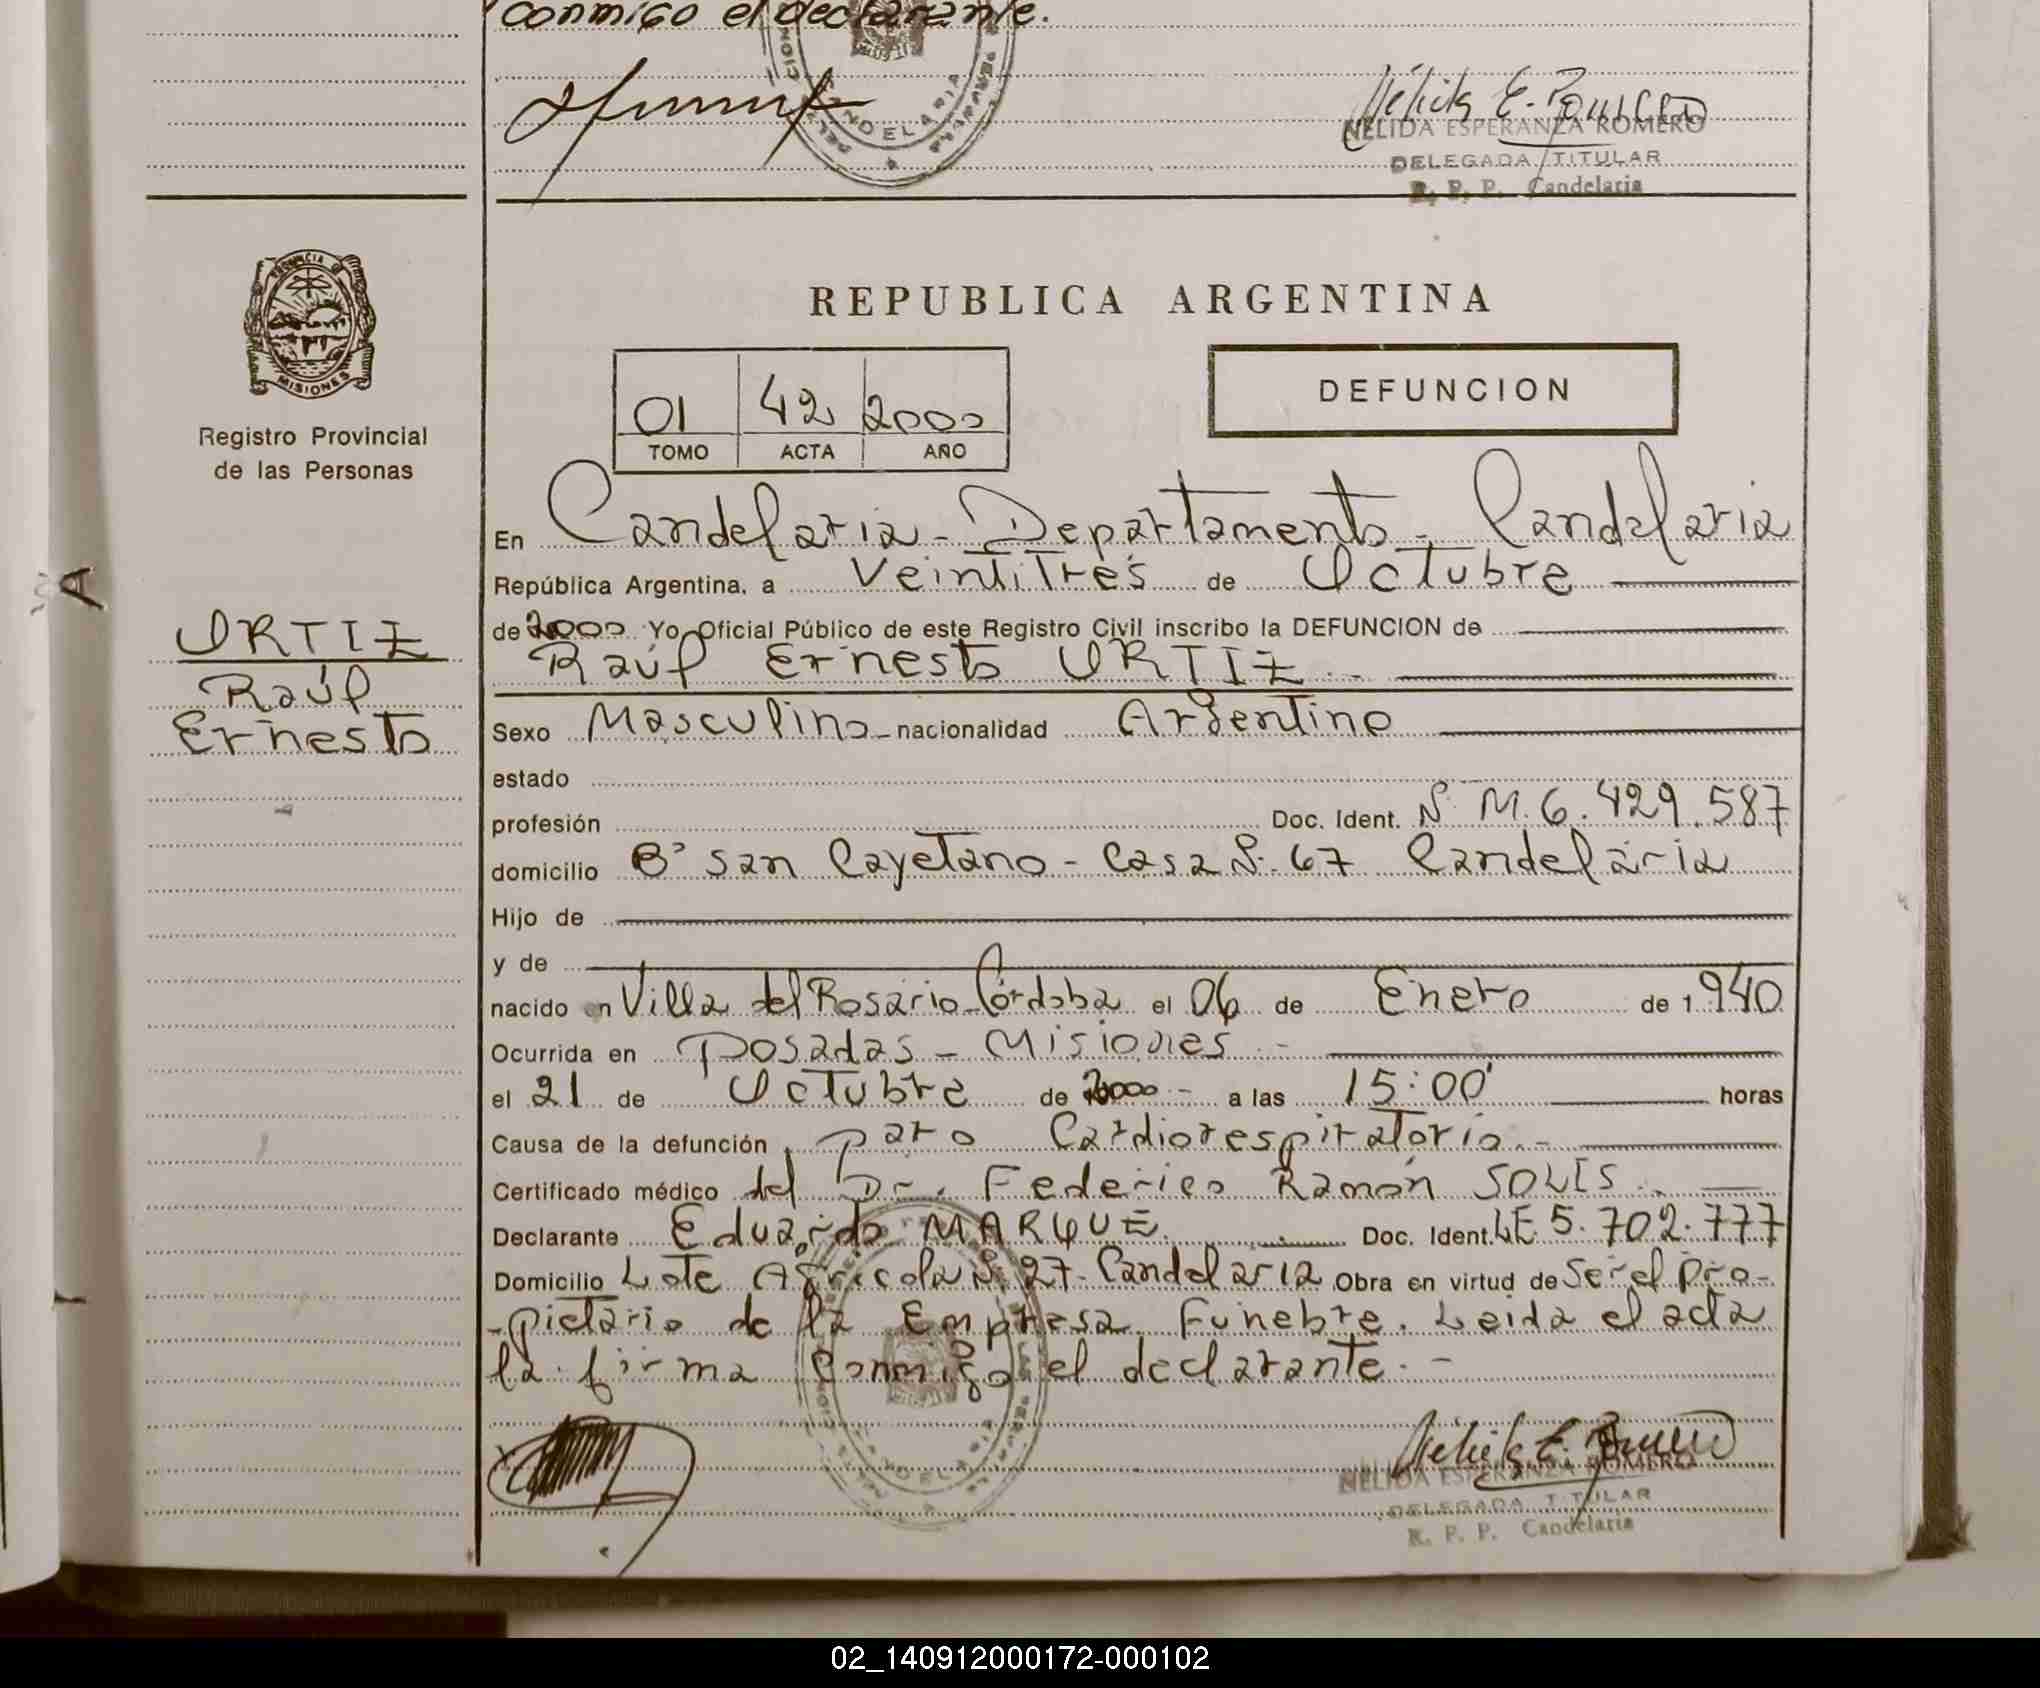 conmigo el declarante.
CANDELARIA
Nélida E. Romero
NELIDA ESPERANZA ROMERO
DELEGADA TITULAR
R. P. P. Candelaria
PROVINCIA DE
MISIONES
Registro Provincial
de las Personas
ORTIZ
Raúl
Ernesto
REPUBLICA ARGENTINA
01 42 2000
TOMO ACTA AÑO
DEFUNCION
En Candelaria - Departamento - Candelaria
República Argentina, a Veintitrés de Octubre
de 2000 Yo, Oficial Público de este Registro Civil inscribo la DEFUNCION de
Raúl Ernesto ORTIZ . -
Sexo Masculino - nacionalidad Argentino
estado
profesión Doc. Ident. Nº M. 6.429.587
domicilio Bº San Cayetano - Casa Nº 67 Candelaria
Hijo de
y de
nacido en Villa del Rosario - Córdoba el 06 de Enero de 1.940
Ocurrida en Posadas - Misiones . -
el 21 de Octubre de 2000 - a las 15:00' horas
Causa de la defunción paro Cardiorespiratorio. -
Certificado médico del Dr. Federico Ramón SOLIS .
Declarante Eduardo MARQUE Doc. Ident. LE 5.702.777
Domicilio Lote Agricola Nº 27 - Candelaria Obra en virtud de Ser el pro-
-pietario de la Empresa Funebre. Leida el acta
la firma Conmigo el declarante. -
CANDELARIA
Nélida E. Romero
NELIDA ESPERANZA ROMERO
DELEGADA TITULAR
R. P. P. Candelaria
02_140912000172-000102